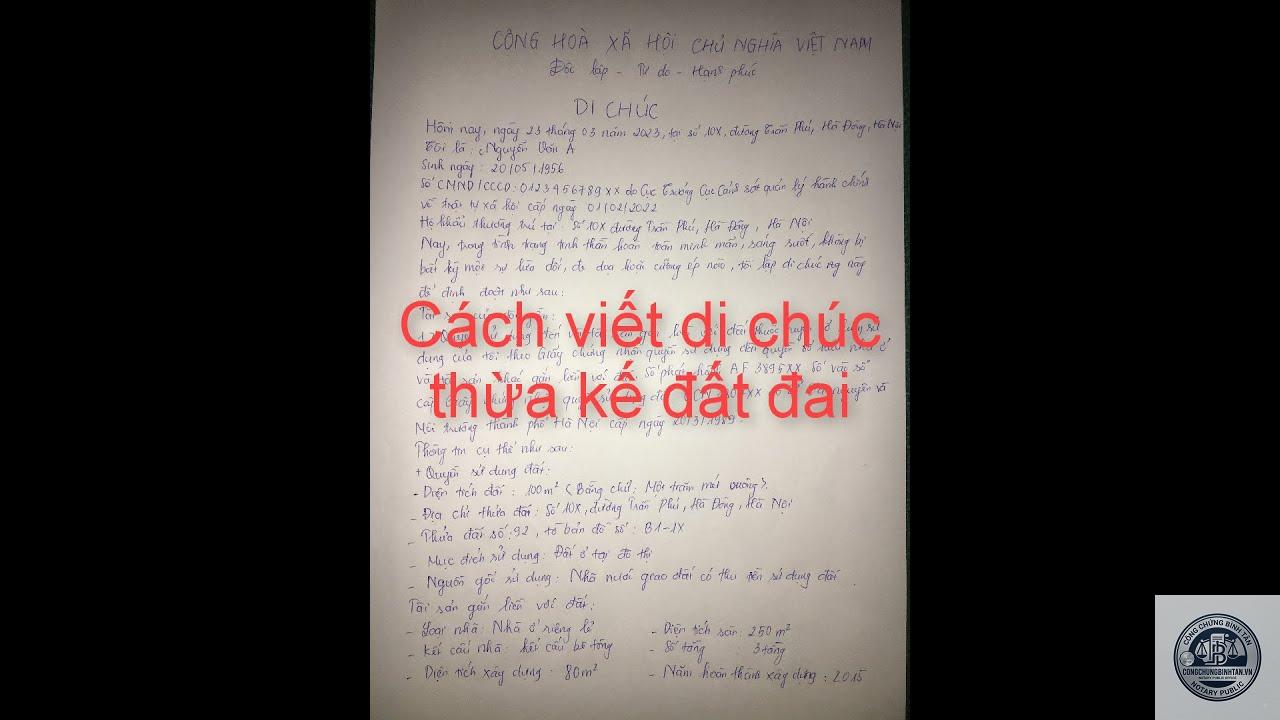 CỘNG HOÀ XÃ HỘI CHỦ NGHĨA VIỆT NAM
Độc lập - Tự do - Hạnh phúc
DI CHÚC
Hôm nay, ngày 23 tháng 03 năm 2023, tại số 10X, đường Trần Phú, Hà Đông, Hà Nội
Tôi là: Nguyễn Văn A
Sinh ngày: 20/05/1956
Số CMND/CCCD: 0123456789XX do Cục Trưởng Cục Cảnh sát quản lý hành chính
về trật tự xã hội cấp ngày 01/02/2022
Hộ khẩu thường trú tại: Số 10X đường Trần Phú, Hà Đông, Hà Nội
Nay, trong tình trạng tinh thần hoàn toàn minh mẫn, sáng suốt, không bị
bất kỳ một sự lừa dối, đe doạ hoặc cưỡng ép nào, tôi lập di chúc này
để định đoạt như sau:
Cách viết di chúc
thừa kế đất đai
dụng của tôi theo Giấy chứng nhận quyền sử dụng đất quyền sở hữu nhà ở
và tài sản khác gắn liền với đất số phát hành AF 3895XX số vào sổ
Môi trường thành phố Hà Nội cấp ngày 20/3/1989
Thông tin cụ thể như sau:
+ Quyền sử dụng đất:
- Diện tích đất: 100m² (Bằng chữ: Một trăm mét vuông).
- Địa chỉ thửa đất: Số 10X, đường Trần Phú, Hà Đông, Hà Nội
- Thửa đất số: 92, tờ bản đồ số: B1-1X
- Mục đích sử dụng: Đất ở tại đô thị
- Nguồn gốc sử dụng: Nhà nước giao đất có thu tiền sử dụng đất.
Tài sản gắn liền với đất:
- Loại nhà: Nhà ở riêng lẻ - Diện tích sàn: 250 m²
- Kết cấu nhà: kết cấu bê tông - Số tầng: 3 tầng
- Diện tích xây dựng: 80m² - Năm hoàn thành xây dựng: 2015
CÔNG CHỨNG BÌNH TÂN
CONGCHUNGBINHTAN.VN
NOTARY PUBLIC OFFICE
NOTARY PUBLIC